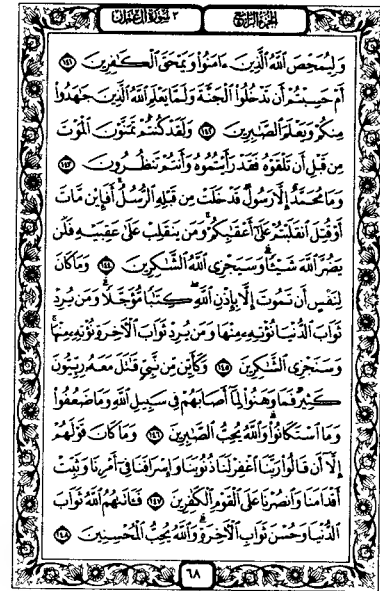 ٣ سُورَةُ آلِ عِمْرَانَ الجُزْءُ الرَّابِعُ
وَلِيُمَحِّصَ ٱللَّهُ ٱلَّذِينَ ءَامَنُوا۟ وَيَمْحَقَ ٱلْكَـٰفِرِينَ ١٤١
أَمْ حَسِبْتُمْ أَن تَدْخُلُوا۟ ٱلْجَنَّةَ وَلَمَّا يَعْلَمِ ٱللَّهُ ٱلَّذِينَ جَـٰهَدُوا۟
مِنكُمْ وَيَعْلَمَ ٱلصَّـٰبِرِينَ ١٤٢ وَلَقَدْ كُنتُمْ تَمَنَّوْنَ ٱلْمَوْتَ
مِن قَبْلِ أَن تَلْقَوْهُ فَقَدْ رَأَيْتُمُوهُ وَأَنتُمْ تَنظُرُونَ ١٤٣
وَمَا مُحَمَّدٌ إِلَّا رَسُولٌ قَدْ خَلَتْ مِن قَبْلِهِ ٱلرُّسُلُ ۚ أَفَإِي۟ن مَّاتَ
أَوْ قُتِلَ ٱنقَلَبْتُمْ عَلَىٰٓ أَعْقَـٰبِكُمْ ۚ وَمَن يَنقَلِبْ عَلَىٰ عَقِبَيْهِ فَلَن
يَضُرَّ ٱللَّهَ شَيْـًٔا ۗ وَسَيَجْزِى ٱللَّهُ ٱلشَّـٰكِرِينَ ١٤٤ وَمَا كَانَ
لِنَفْسٍ أَن تَمُوتَ إِلَّا بِإِذْنِ ٱللَّهِ كِتَـٰبًا مُّؤَجَّلًا ۗ وَمَن يُرِدْ
ثَوَابَ ٱلدُّنْيَا نُؤْتِهِۦ مِنْهَا وَمَن يُرِدْ ثَوَابَ ٱلْـَٔاخِرَةِ نُؤْتِهِۦ مِنْهَا ۚ
وَسَنَجْزِى ٱلشَّـٰكِرِينَ ١٤٥ وَكَأَيِّن مِّن نَّبِىٍّ قَـٰتَلَ مَعَهُۥ رِبِّيُّونَ
كَثِيرٌ فَمَا وَهَنُوا۟ لِمَآ أَصَابَهُمْ فِى سَبِيلِ ٱللَّهِ وَمَا ضَعُفُوا۟
وَمَا ٱسْتَكَانُوا۟ ۗ وَٱللَّهُ يُحِبُّ ٱلصَّـٰبِرِينَ ١٤٦ وَمَا كَانَ قَوْلَهُمْ
إِلَّآ أَن قَالُوا۟ رَبَّنَا ٱغْفِرْ لَنَا ذُنُوبَنَا وَإِسْرَافَنَا فِىٓ أَمْرِنَا وَثَبِّتْ
أَقْدَامَنَا وَٱنصُرْنَا عَلَى ٱلْقَوْمِ ٱلْكَـٰفِرِينَ ١٤٧ فَـَٔاتَىٰهُمُ ٱللَّهُ ثَوَابَ
ٱلدُّنْيَا وَحُسْنَ ثَوَابِ ٱلْـَٔاخِرَةِ ۗ وَٱللَّهُ يُحِبُّ ٱلْمُحْسِنِينَ ١٤٨
٦٨